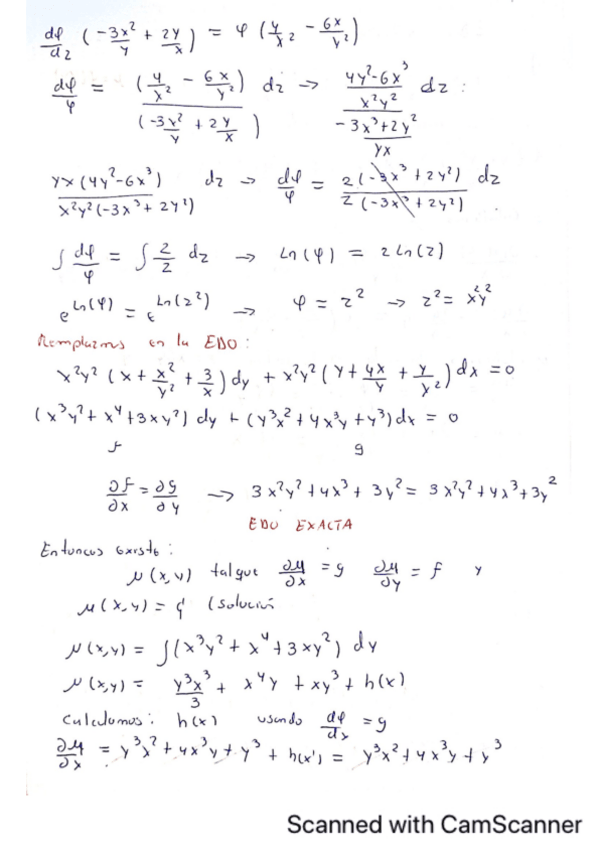 dφ/dz (-3x²/y + 2y/x) = φ (y/x² - 6x/y²)
dφ/φ = (4/x² - 6x/y²) / (-3x²/y + 2y/x) dz → (4y²-6x³ / x²y²) / (-3x³+2y² / yx) dz :
yx(4y²-6x³) / x²y²(-3x³+2y²) dz → dφ/φ = 2(-3x³+2y²) / z(-3x³+2y²) dz
∫ dφ/φ = ∫ 2/z dz → Ln(φ) = 2Ln(z)
e^Ln(φ) = e^Ln(z²) → φ = z² → z² = x²y²
Remplazamos en la EDO:
x²y² (x + x²/y² + 3/x) dy + x²y² (y + 4x/y + y/x²) dx = 0
(x³y² + x⁴ + 3xy²) dy + (y³x² + 4x³y + y³) dx = 0
f g
∂f/∂x = ∂g/∂y → 3x²y² + 4x³ + 3y² = 3x²y² + 4x³ + 3y²
EDO EXACTA
Entonces existe:
μ(x,y) tal que ∂μ/∂x = g ∂μ/∂y = f y
μ(x,y) = (solución
μ(x,y) = ∫(x³y² + x⁴ + 3xy²) dy
μ(x,y) = y³x³/3 + x⁴y + xy³ + h(x)
Calculamos: h(x) usando dφ/dx = g
∂μ/∂x = y³x² + 4x³y + y³ + h(x') = y³x² + 4x³y + y³
Scanned with CamScanner